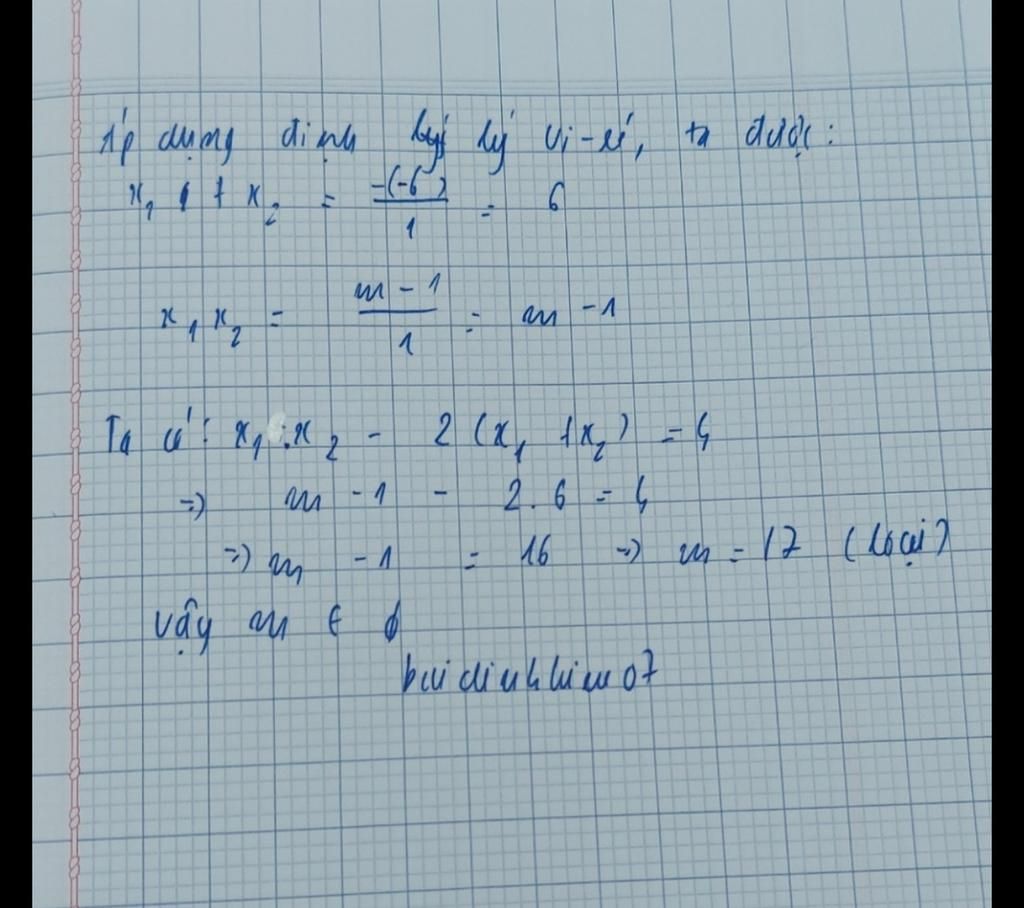 áp dụng định lý vi-ét, ta được:
x₁ + x₂ = -(-6)/1 = 6
x₁x₂ = m - 1/1 = m - 1
Ta có: x₁.x₂ - 2(x₁ + x₂) = 4
=> m - 1 - 2.6 = 4
=> m - 1 = 16 => m = 17 (loại)
vậy m ∈ ∅
buidinhhieu07